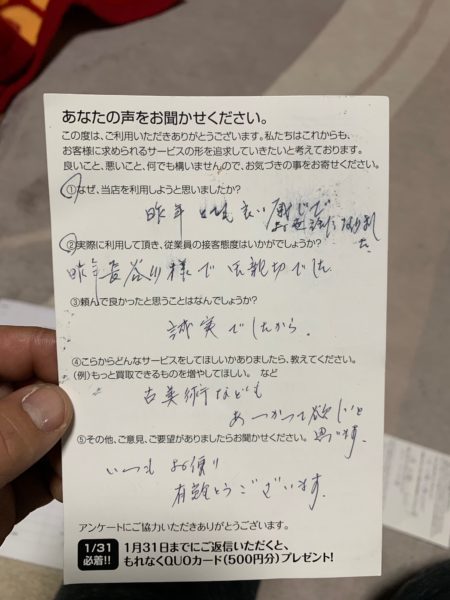 あなたの声をお聞かせください。
この度は、ご利用いただきありがとうございます。私たちはこれからも、
お客様に求められるサービスの形を追求していきたいと考えております。
良いこと、悪いこと、何でも構いませんので、お気づきの事をお寄せください。
①なぜ、当店を利用しようと思いましたか?
昨年 とても良い感じで
お世話になりました
②実際に利用して頂き、従業員の接客態度はいかがでしょうか?
昨年長谷川様で 親切でした
③頼んで良かったと思うことはなんでしょうか?
誠実でしたから。
④こらからどんなサービスをしてほしいかありましたら、教えてください。
(例)もっと買取できるものを増やしてほしい。 など
古美術なども
あつかって欲しいと
思います。
⑤その他、ご意見、ご要望がありましたらお聞かせください。
いつもお便り
有難とうございます。
アンケートにご協力いただきありがとうございます。
1/31
必着!!
1月31日までにご返信いただくと、
もれなくQUOカード(500円分)プレゼント!